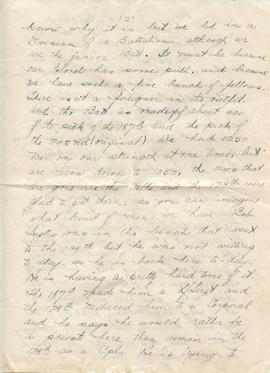 (2)
know why it is but we led in a
Division of a Battalions although we
are the junior Batt. It must be because
our Colonel has some pull, and because
we have such a fine bunch of fellows.
There isn't a foreigner in the outfit
and the Batt is made up of about 200
of the pick of the 187th and the pick of
the 202nd (original) We had 1250
men on our strength at one time, but
are now down to 1050, the 200 that
are gone are the the 128th were
glad to get them, so you can imagine
what kind of men we have. Bob
was in the bunch that went
to the 128th but he was not willing
to stay so he is back here to-day.
He is having a pretty hard time of it.
The 187th made him a and
the 128th reduced him to a Corporal
and he says he would rather be
a private here than remain in the
128th as a Cpl. He is trying to